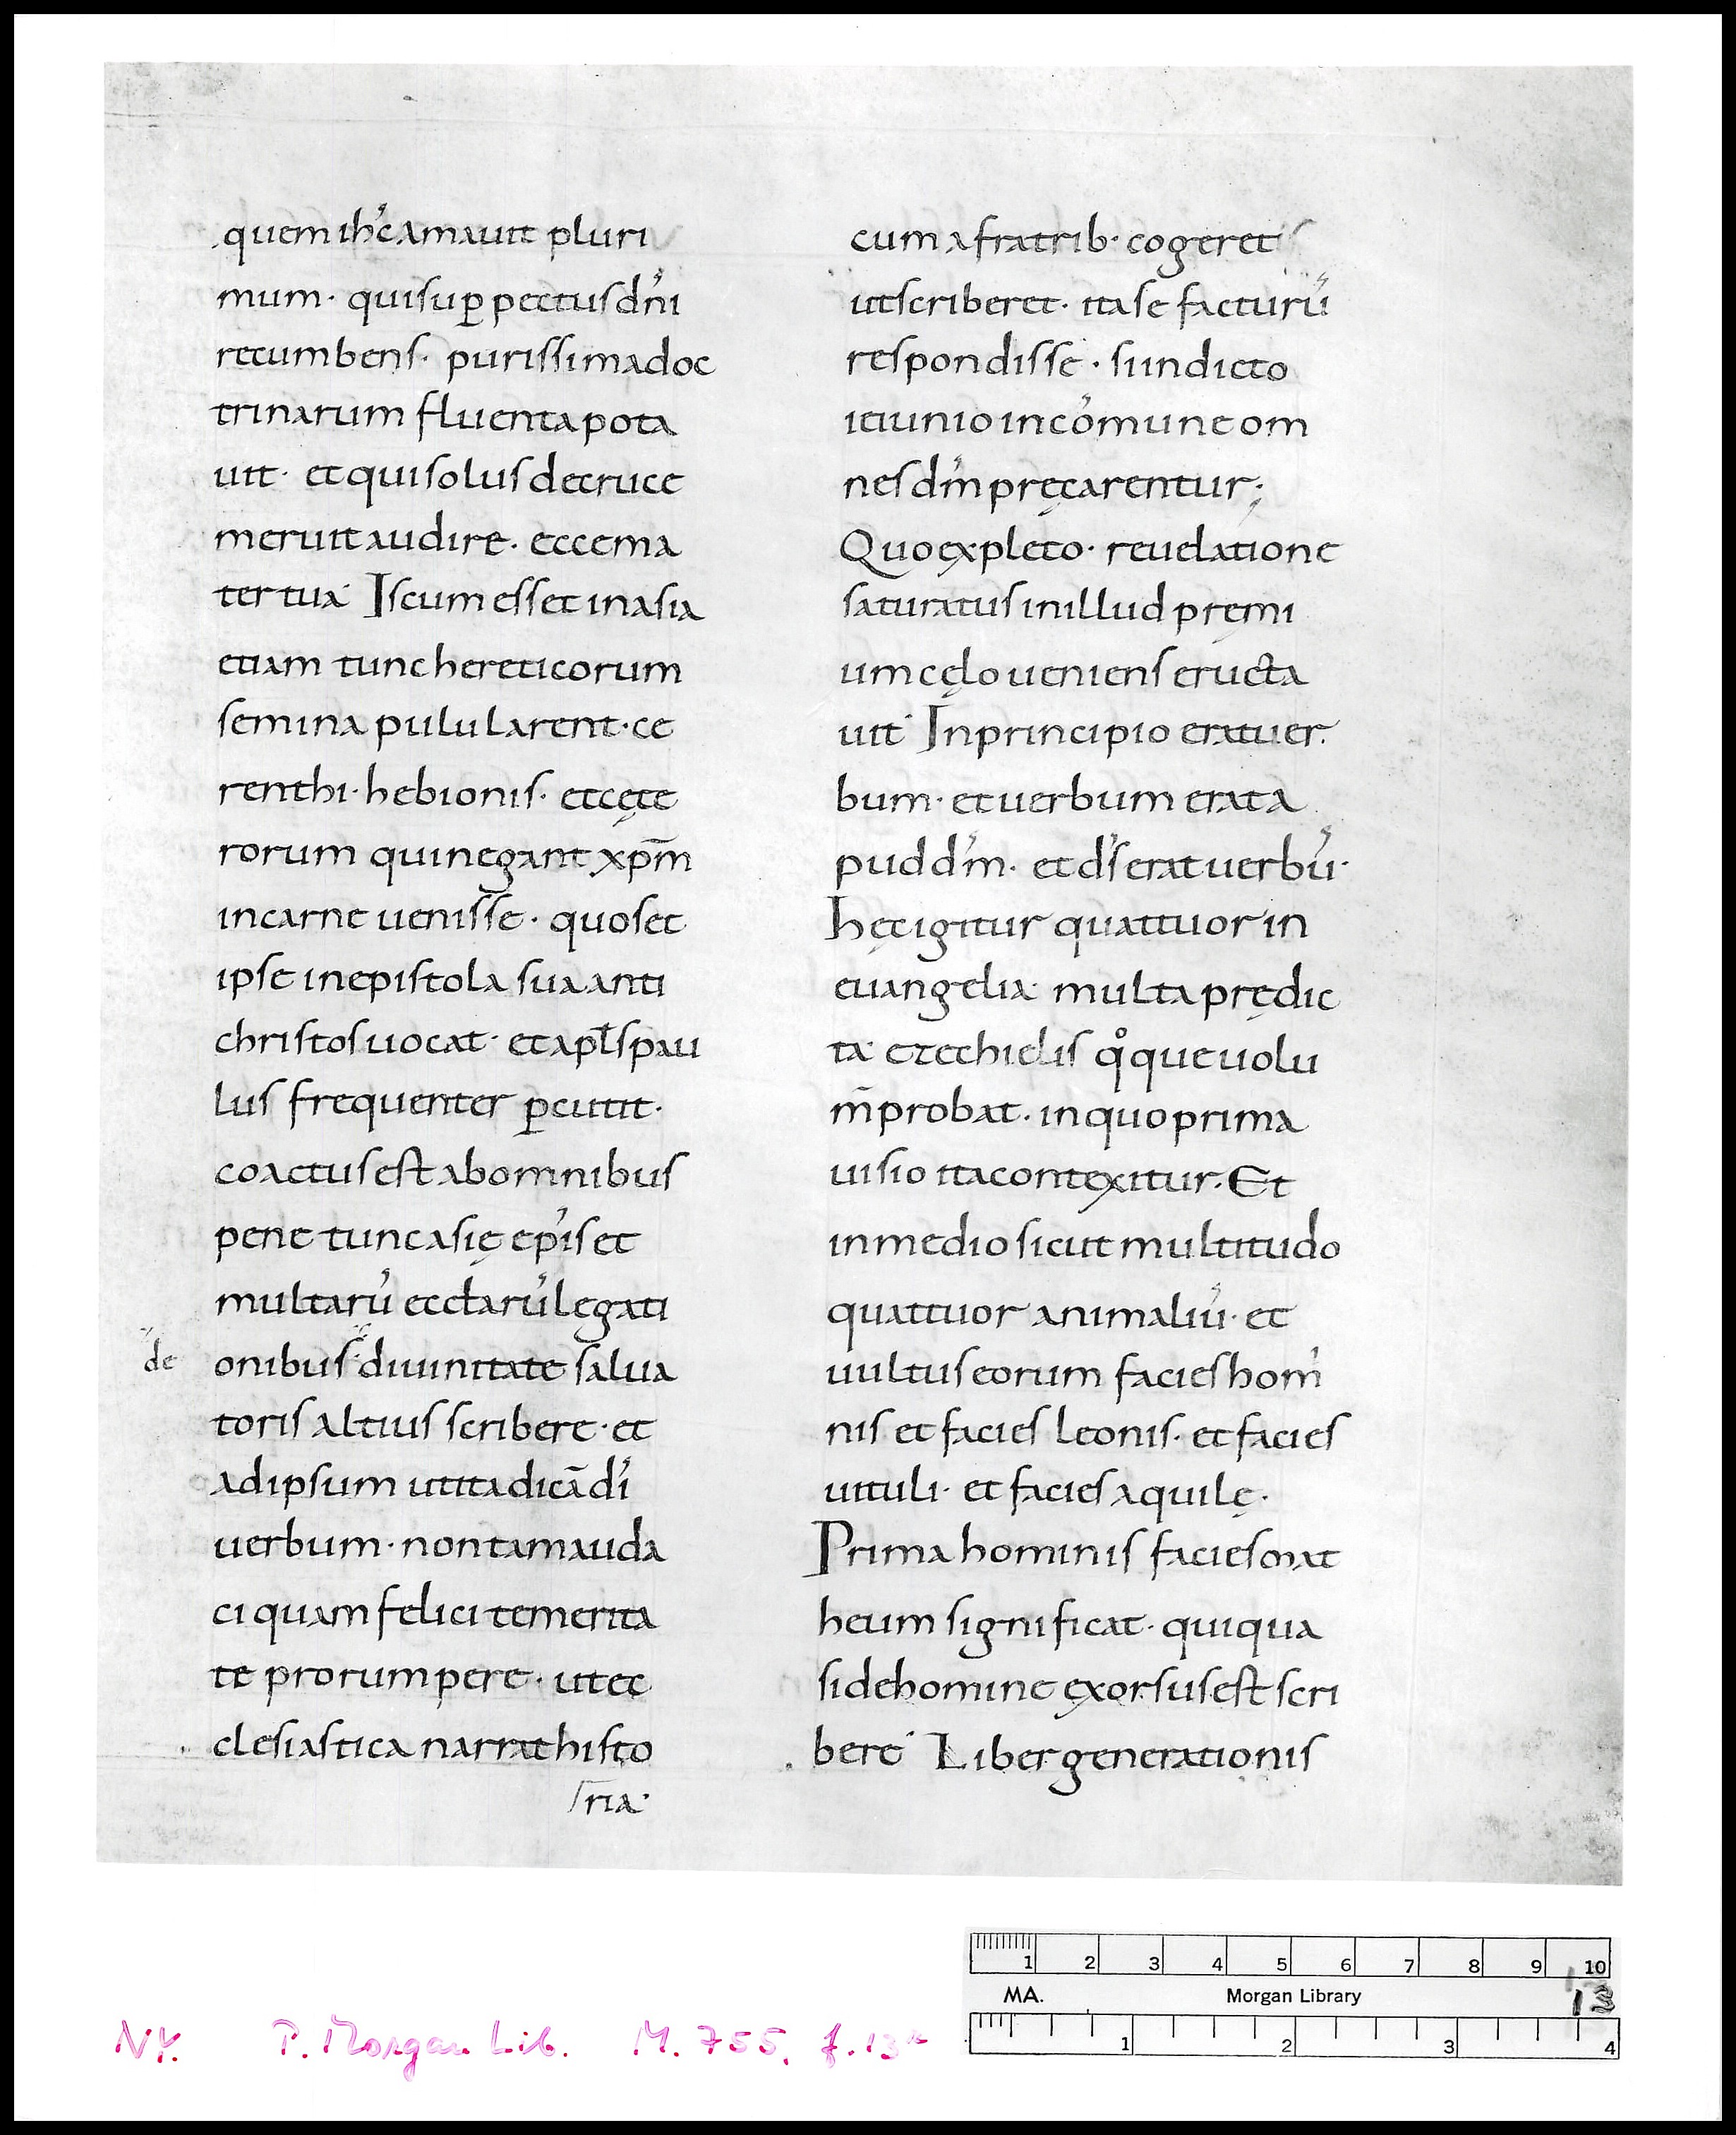 quem ihc̄ amauit pluri
mum· qui sup̱ pectus dn̄i
recumbens· purissima doc
trinarum fluenta pota
uit· et qui solus de cruce
meruit audire· ecce ma
ter tua· Is cum esset in asia
etiam tunc hereticorum
semina pulularent· ce
renthi· hebionis· et cęte
rorum qui negant xpm̄
in carne uenisse· quos et
ipse in epistola sua anti
christos uocat· et apl̄s pau
lus frequenter ꝑcutit·
coactus est ab omnibus
pene tunc asię ep̄is et
multarū eccl̄arū legati
de
onibus diuinitate salua
toris altius scribere· et
ad ipsum ut ita dicā dī
uerbum· non tam auda
ci quam felici temerita
te prorumpere· ut ec
clesiastica narrat histo
ria·
cum a fratrib· cogeret
ut scriberet· ita se facturū
respondisse· si indicto
ieiunio in cōmune om
nes dm̄ pręcarentur;
Quo expleto· reuelatione
saturatus in illud pręmi
um cęlo ueniens eructa
uit· In principio erat uer
bum· et uerbum erat a
pud dm̄· et ds̄ erat uerbū·
hęc igitur quattuor in
euangelia· multa prędic
ta· ezechielis qͦque uolu
m̄ probat· in quo prima
uisio ita contexitur· Et
in medio sicut multitudo
quattuor animaliū· et
uultus eorum facies hom̄
nis et facies leonis· et facies
uituli· et facies aquilę·
Prima hominis facies mat
heum significat· qui qua
si de homine exorsus est scri
bere· Liber generationis
1 2 3 4 5 6 7 8 9 10
MA. Morgan Library
13
1 2 3 4
NY. P. Morgan Lib. M. 755, f. 13r